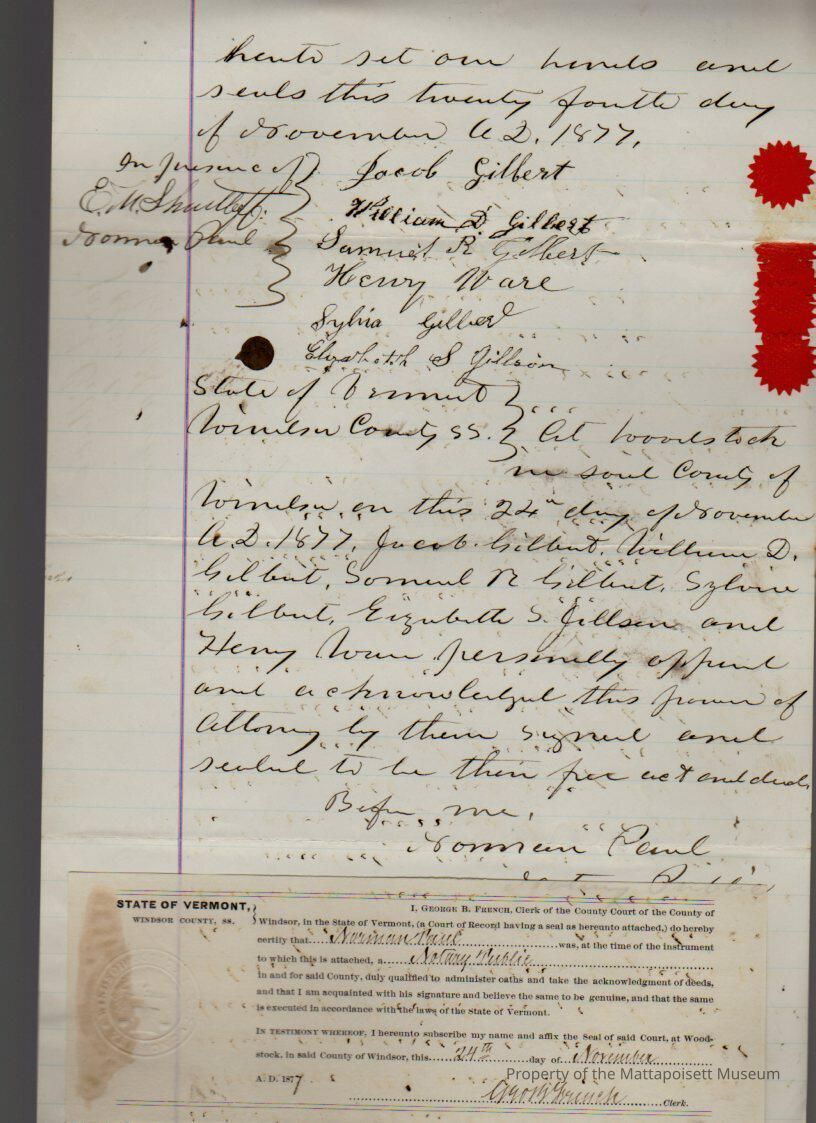 hereto set our hands and
seals this twenty fourth day
of November A.D. 1877.
In presence of
Jacob Gilbert
E. M. Shurtleff.
William D. Gilbert
Norman Paul
Samuel R Gilbert
Henry Ware
Sylvia Gilbert
Elizabeth S Jillson
State of Vermont
Windsor County SS. At Woodstock
in said County of
Windsor on this 24" day of November
A.D. 1877, Jacob Gilbert, William D.
Gilbert, Samuel R Gilbert, Sylvia
Gilbert, Elizabeth S. Jillson and
Henry Ware personally appeared
and acknowledged this power of
Attorney by them signed and
sealed to be their free act and deed
Before me,
Norman Paul
Notary Public
STATE OF VERMONT,
WINDSOR COUNTY, SS.
I, GEORGE B. FRENCH, Clerk of the County Court of the County of
Windsor, in the State of Vermont, (a Court of Record having a seal as hereunto attached,) do hereby
certify that Norman Paul was, at the time of the instrument
to which this is attached, a Notary Public
in and for said County, duly qualified to administer oaths and take the acknowledgment of deeds,
and that I am acquainted with his signature and believe the same to be genuine, and that the same
is executed in accordance with the laws of the State of Vermont.
IN TESTIMONY WHEREOF, I hereunto subscribe my name and affix the Seal of said Court, at Wood-
stock, in said County of Windsor, this 24th day of November
A. D. 1877
Property of the Mattapoisett Museum
Geo B French Clerk.